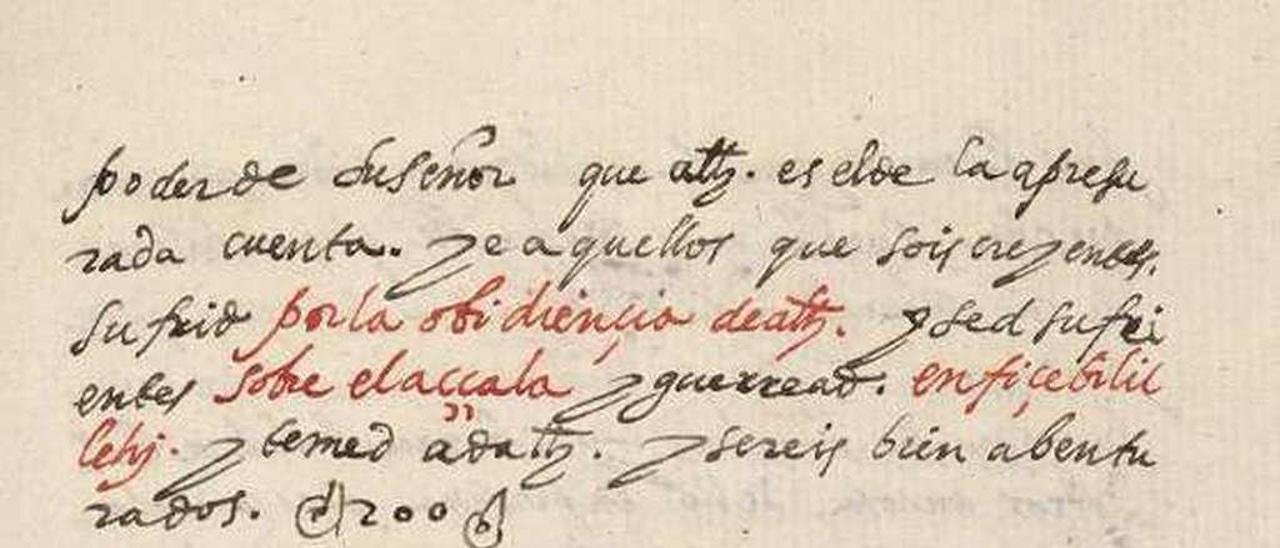 poder de su señor que allh. es el de la apresu
rada cuenta. ye aquellos que sois creyentes.
sufrid por la obidiençia de allh. y sed sufri
entes sobre el aççala y guerread. en fiçebilil
lehi. y temed ad allh. y sereis bien abentu
rados. 200